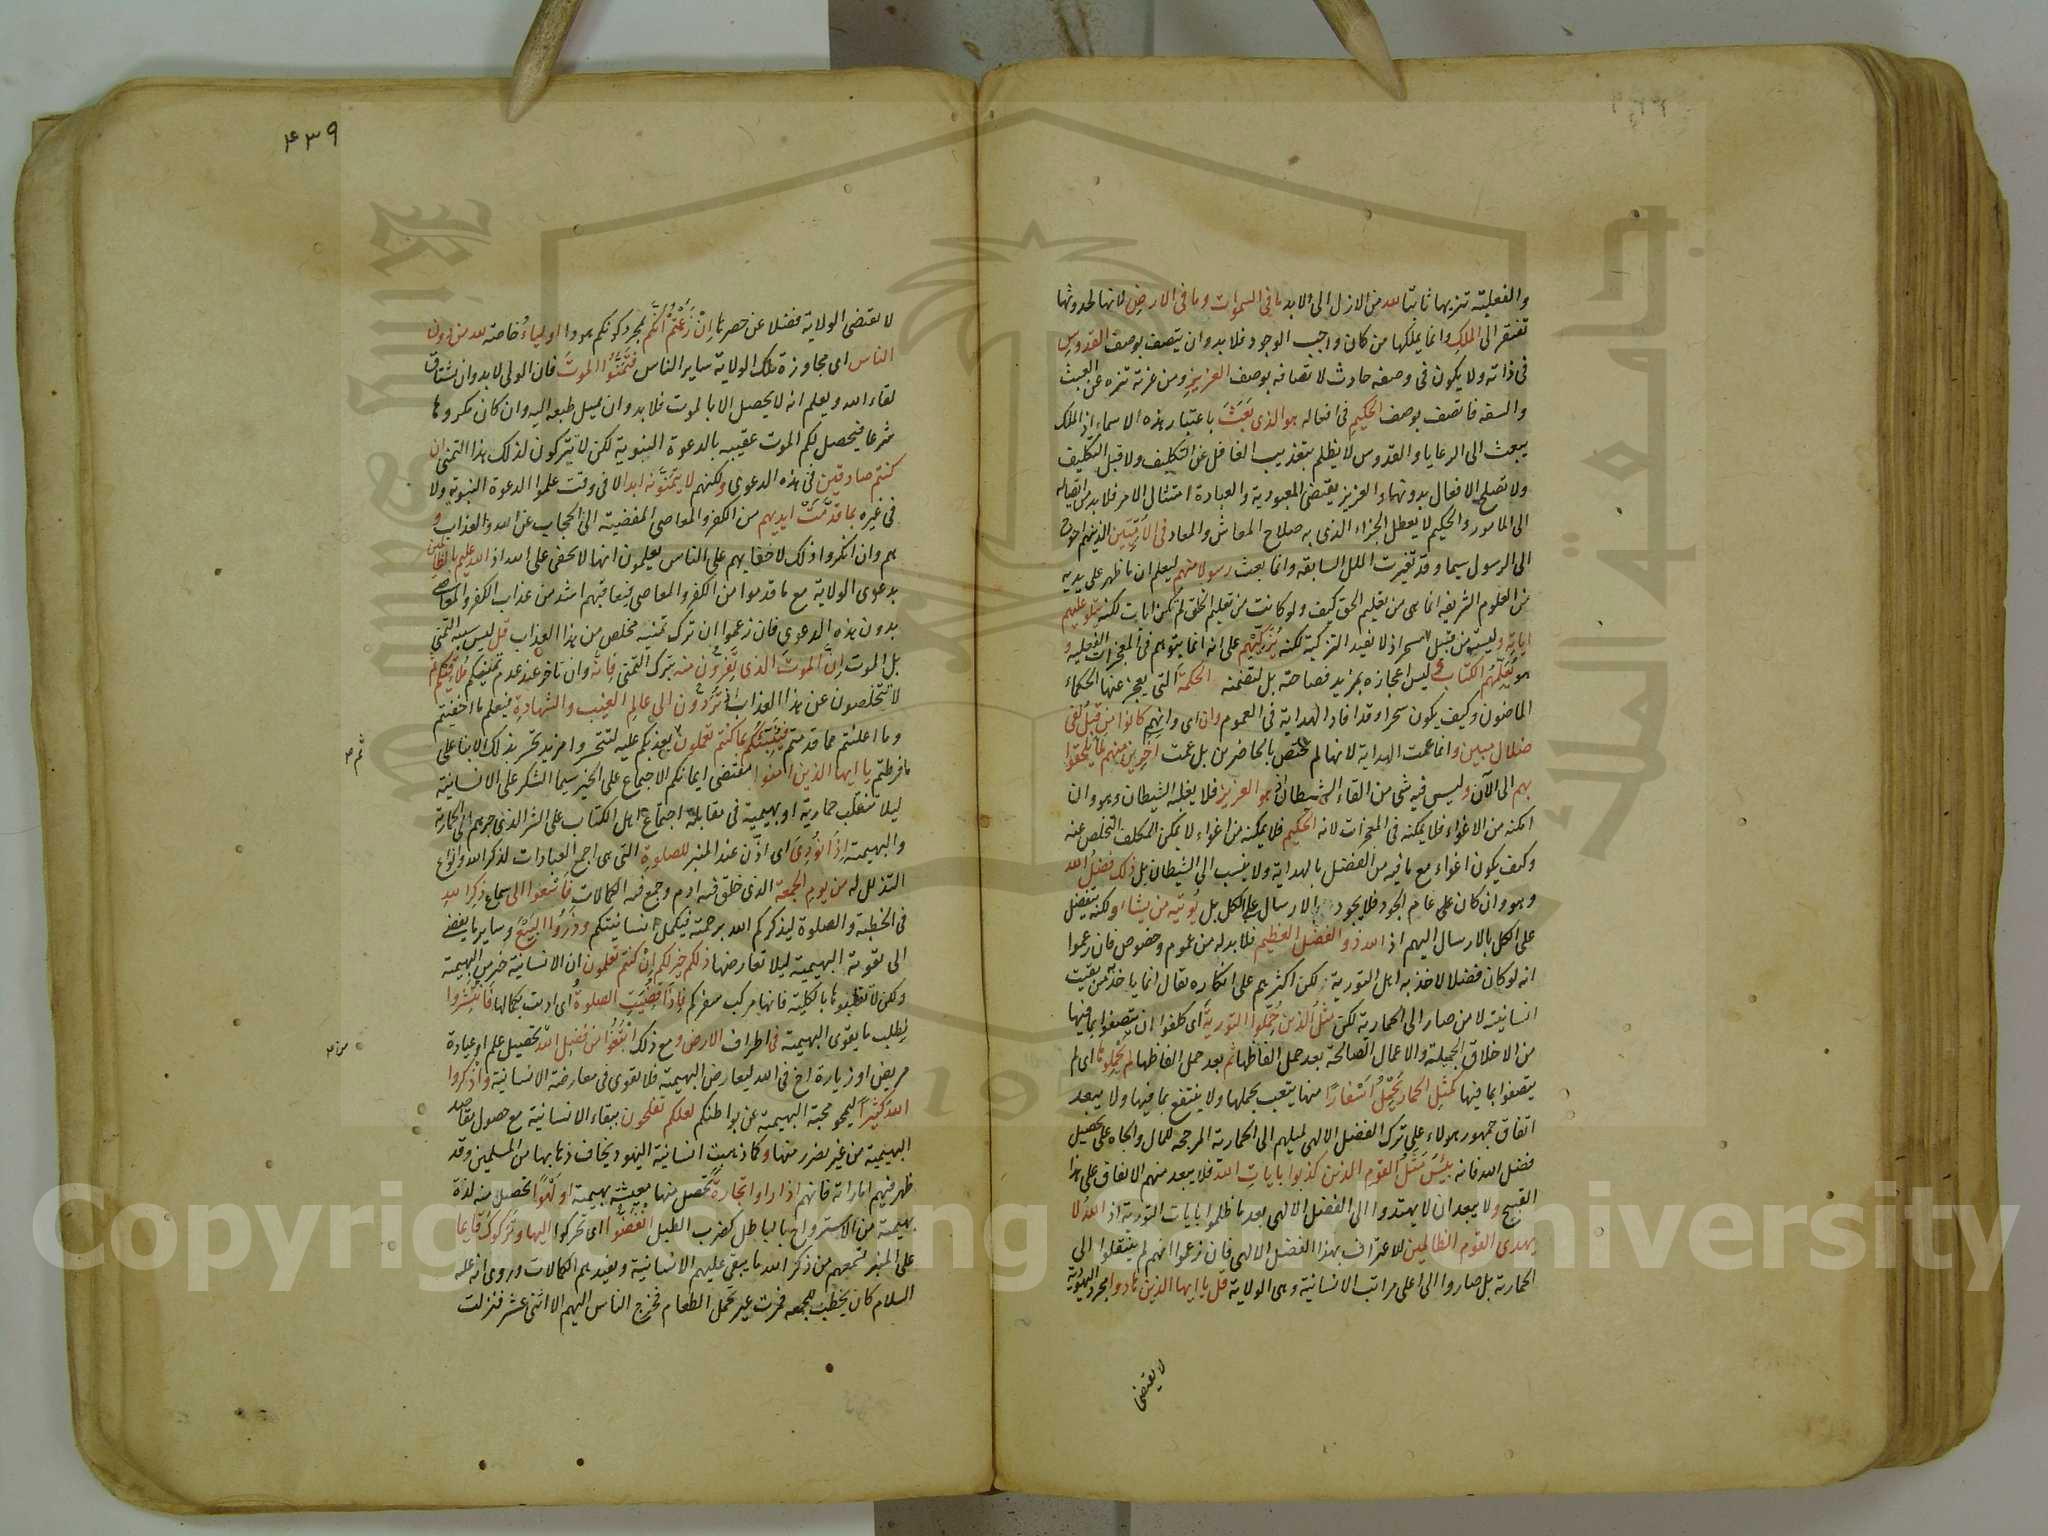 والفعلية تنزيها ثابتا لله من الازل الى الابد ما فى السموات وما فى الارض لانها لحدوثها
تفتقر الى الملك وانما يملكها من كان واجب الوجود فلا بد وان يتصف بوصف القدوس
فى ذاته ولا يكون فى وصفه حادث لاتصافه بوصف العزيز ومن عزته تنزه عن العبث
والسفه فاتصف بوصف الحكيم فى افعاله هو الذى بعث باعتبار هذه الاسماء اذ الملك
يبعث الى الرعايا والقدوس لا يظلم بتعذيب الغافل عن التكليف ولا قبل التكليف
ولا تصلح الافعال بدونهما والعزيز يقتضى المعبودية والعبادة امتثال الامر فلا بد من ايصاله
الى المامور والحكيم لا يعطل الجزاء الذى به صلاح المعاش والمعاد فى الاميين الذين هم احوج
الى الرسول سيما وقد تغيرت الملل السابقة وانما بعث رسولا منهم ليعلم ان ما ظهر على يديه
من العلوم الشريفة انما هى من تعليم الحق كيف ولو كانت من تعليم الخلق لم تكن ايات لكنه يتلو عليهم
اياته وليست من قبيل السحر اذ لا يفيد التزكية لكنه يزكيهم على انه انما يتوهم فى المعجزات الفعلية و
هو يعلمهم الكتاب و ليس اعجازه بمزيد فصاحته بل لتضمنه الحكمة التى يعجز عنها الحكماء
الماضون وكيف يكون سحرا وقد افاد الهداية فى العموم وان اى وانهم كانوا من قبل لفى
ضلال مبين وانما عمت الهداية لانها لم تختص بالحاضرين بل عمت اخرين منهم لما يلحقوا
بهم الى الآن وليس فيه شى من القاء الشيطان اذ هو العزيز فلا يغلبه الشيطان وهو وان
امكنه من الاغواء فلا يمكنه فى المعجزات لانه الحكيم فلا يمكنه من اغواء لا يمكن المكلف التخلص عنه
وكيف يكون اغواء مع ما فيه من الفضل بالهداية ولا ينسب الى الشيطان بل ذلك فضل الله
وهو وان كان على عام الجود فلا يجود بالارسال على الكل بل يؤتيه من يشاء ولكنه يتفضل
على الكل بالارسال اليهم اذ الله ذو الفضل العظيم فلا بد له من عموم وخصوص فان زعموا
انه لو كان فضلا لاخذ به اهل التورية لكن اكثرهم على انكاره يقال انما ياخذ به من بقيت
انسانيته لا من صار الى الحمارية لكن مثل الذين حملوا التورية اى كلفوا ان يتصفوا بما فيها
من الاخلاق الجميلة والاعمال الصالحة بعد حمل الفاظها ثم بعد حمل الفاظها لم يحملوها اى لم
يتصفوا بما فيها كمثل الحمار يحمل اسفارا منها يتعب بحملها ولا ينتفع بما فيها ولا يبعد
اتفاق جمهور هولاء على ترك الفضل الالهى لميلهم الى الحمارية المرجحة للمال والجاه على تحصيل
فضل الله فانه بئس مثل القوم الذين كذبوا بايات الله فلا يبعد منهم الاتفاق على هذا
القبيح ولا يبعد ان لا يهتدوا الى الفضل الالهى بعد ما ظلموا بايات التورية اذ الله لا
يهدى القوم الظالمين للاعتراف بهذا الفضل الالهى فان زعموا انهم لم ينتقلوا الى
الحمارية بل صاروا الى اعلى مراتب الانسانية وهى الولاية قل يا ايها الذين هادوا مجرد اليهودية
لا يقتضى
٤٣٩
لا يقتضى الولاية فضلا عن حصرها ان زعمتم انكم بمجرد كونكم يهودا اولياء خاصة لله من دون
الناس اى مجاوزة تلك الولاية ساير الناس فتمنوا الموت فان الولى لا بد وان يشتاق
لقاء الله ويعلم انه لا يحصل الا بالموت فلا بد وان يميل طبعه اليه وان كان مكروها
شرعا فيحصل لكم الموت عقيبه بالدعوة النبوية لكن لا يتركون لذلك هذا التمنى ان
كنتم صادقين فى هذه الدعوى ولكنهم لا يتمنونه ابدا لا فى وقت علموا الدعوة النبوية ولا
فى غيره بما قدمت ايديهم من الكفر والمعاصى المفضية الى الحجاب عن الله والعذاب و
هم وان انكروا ذلك لاخفايهم على الناس يعلمون انها لا تخفى على الله اذ الله عليم بالظالمين
بدعوى الولاية مع ما قدموا من الكفر والمعاصى فيعاقبهم اشد من عذاب الكفر والمعاصى
بدون هذه الدعوى فان زعموا ان ترك تمنيه مخلص من هذا العذاب قل ليس سببه التمنى
بل الموت ان الموت الذى تفرون منه بترك التمنى فانه وان تاخر عند عدم تمنيكم ملاقيكم ثم
لا تتخلصون عن هذا العذاب اذ تردون الى عالم الغيب والشهادة فيعلم ما اخفيتم
وما اعلنتم مما قدمتم فينبئكم بما كنتم تعملون يعذبكم عليه لتتحسروا مزيد تحسر بذلك الانباء على
ما فرطتم يا ايها الذين امنوا مقتضى ايمانكم الاجتماع على الخير سيما الشكر على الانسانية
ليلا تنقلب حمارية او بهيمية فى مقابلة اجتماع اهل الكتاب على الشر الذى جرهم الى الحمارية
والبهيمية اذا نودى اى اذن عند المنبر للصلوة التى هى اجمع العبادات لذكر الله وانواع
التذلل له من يوم الجمعة الذى خلق فيه ادم وجمع فيه الكمالات فاسعوا الى سماع ذكر الله
فى الخطبة والصلوة ليذكركم الله برحمته فيكمل انسانيتكم وذروا البيع وساير ما يفضى
الى تقوية البهيمية ليلا تعارضها ذلكم خير لكم ان كنتم تعلمون ان الانسانية خير من البهيمية
ولكن لا تقلبوها بالكلية فانها مركب سفركم فاذا قضيت الصلوة اى اديت بكمالها فانتشروا
لطلب ما يقوى البهيمية فى اطراف الارض ومع ذلك ابتغوا من فضل الله تحصيل علم او عيادة
مريض او زيارة اخ فى الله ليعارض البهيمية فلا تقوى فى معارضة الانسانية واذكروا
الله كثيرا ليمحو محبة البهيمية عن بواطنكم لعلكم تفلحون ببقاء الانسانية مع حصول مقاصد
البهيمية من غير تضرر منها وكما ذهبت انسانية اليهود يخاف ذهابها من المسلمين وقد
ظهر فيهم اماراته فانهم اذا راوا تجارة تحصل منها معيشة بهيمية او لهوا تحصل منه لذة
بهيمية من الاسترواح بالباطل كضرب الطبل انفضوا اى تحركوا اليها وتركوك قايما
على المنبر تسمعهم من ذكر الله ما يبقى عليهم الانسانية ويفيدهم الكمالات وروى انه عليه
السلام كان يخطب للجمعة فمرت عير تحمل الطعام فخرج الناس اليهم الا اثنى عشر فنزلت
Copyright © King Saud University
جامعة الملك سعود